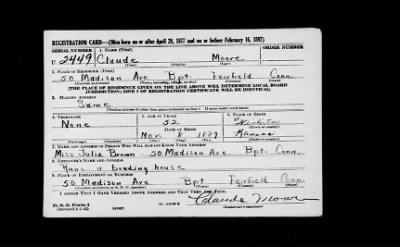 REGISTRATION CARD—(Men born on or after April 28, 1877 and on or before February 16, 1897)
SERIAL NUMBER 1. NAME (Print) ORDER NUMBER
U 2449 Claude Moore
2. PLACE OF RESIDENCE (Print)
50 Madison Ave Bpt. Fairfield Conn.
[THE PLACE OF RESIDENCE GIVEN ON THE LINE ABOVE WILL DETERMINE LOCAL BOARD
JURISDICTION; LINE 2 OF REGISTRATION CERTIFICATE WILL BE IDENTICAL]
3. MAILING ADDRESS
Same
4. TELEPHONE 5. AGE IN YEARS 6. PLACE OF BIRTH
None 52
DATE OF BIRTH
Nov. 8 1889 Kansas
7. NAME AND ADDRESS OF PERSON WHO WILL ALWAYS KNOW YOUR ADDRESS
Miss Julia Brown 50 Madison Ave Bpt. Conn.
8. EMPLOYER'S NAME AND ADDRESS
house
9. PLACE OF EMPLOYMENT OR BUSINESS
50 Madison Ave Bpt Fairfield Conn.
I AFFIRM THAT I HAVE VERIFIED ABOVE ANSWERS AND THAT THEY ARE TRUE.
D. S. S. Form 1
Claude Moore